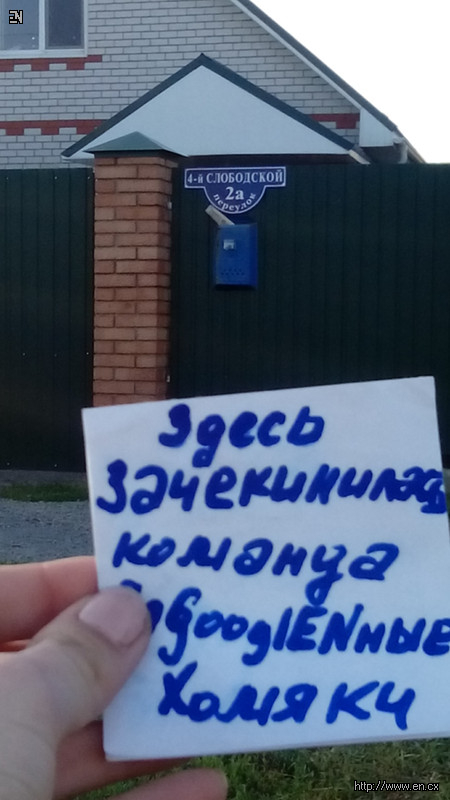 EN
4-й СЛОБОДСКОЙ
2а
переулок
Здесь
Зачекинилась
команда
Хомяки
http://www.en.cx